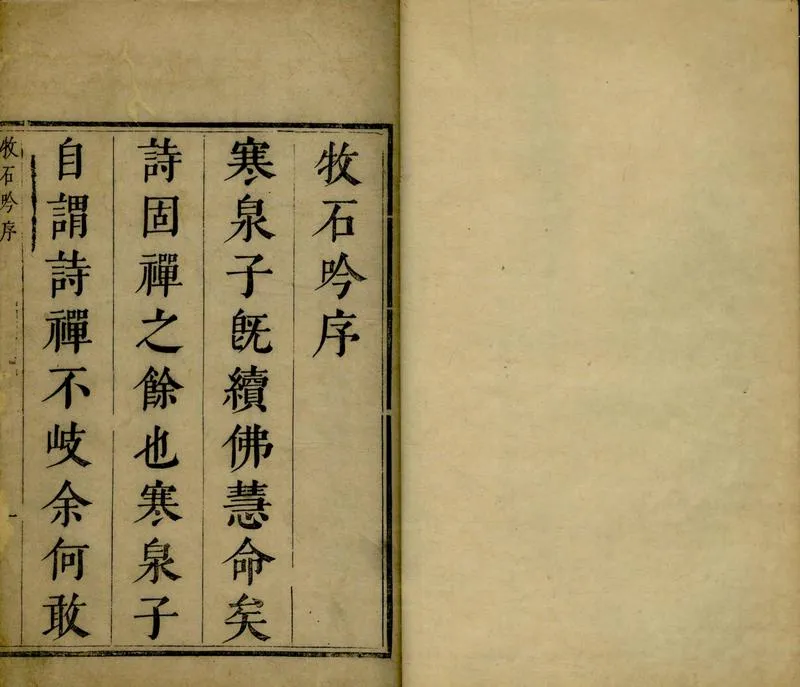 牧石吟序
寒泉子既續佛慧命矣
詩固禪之餘也寒泉子
自謂詩禪不岐余何敢
牧石吟序
一